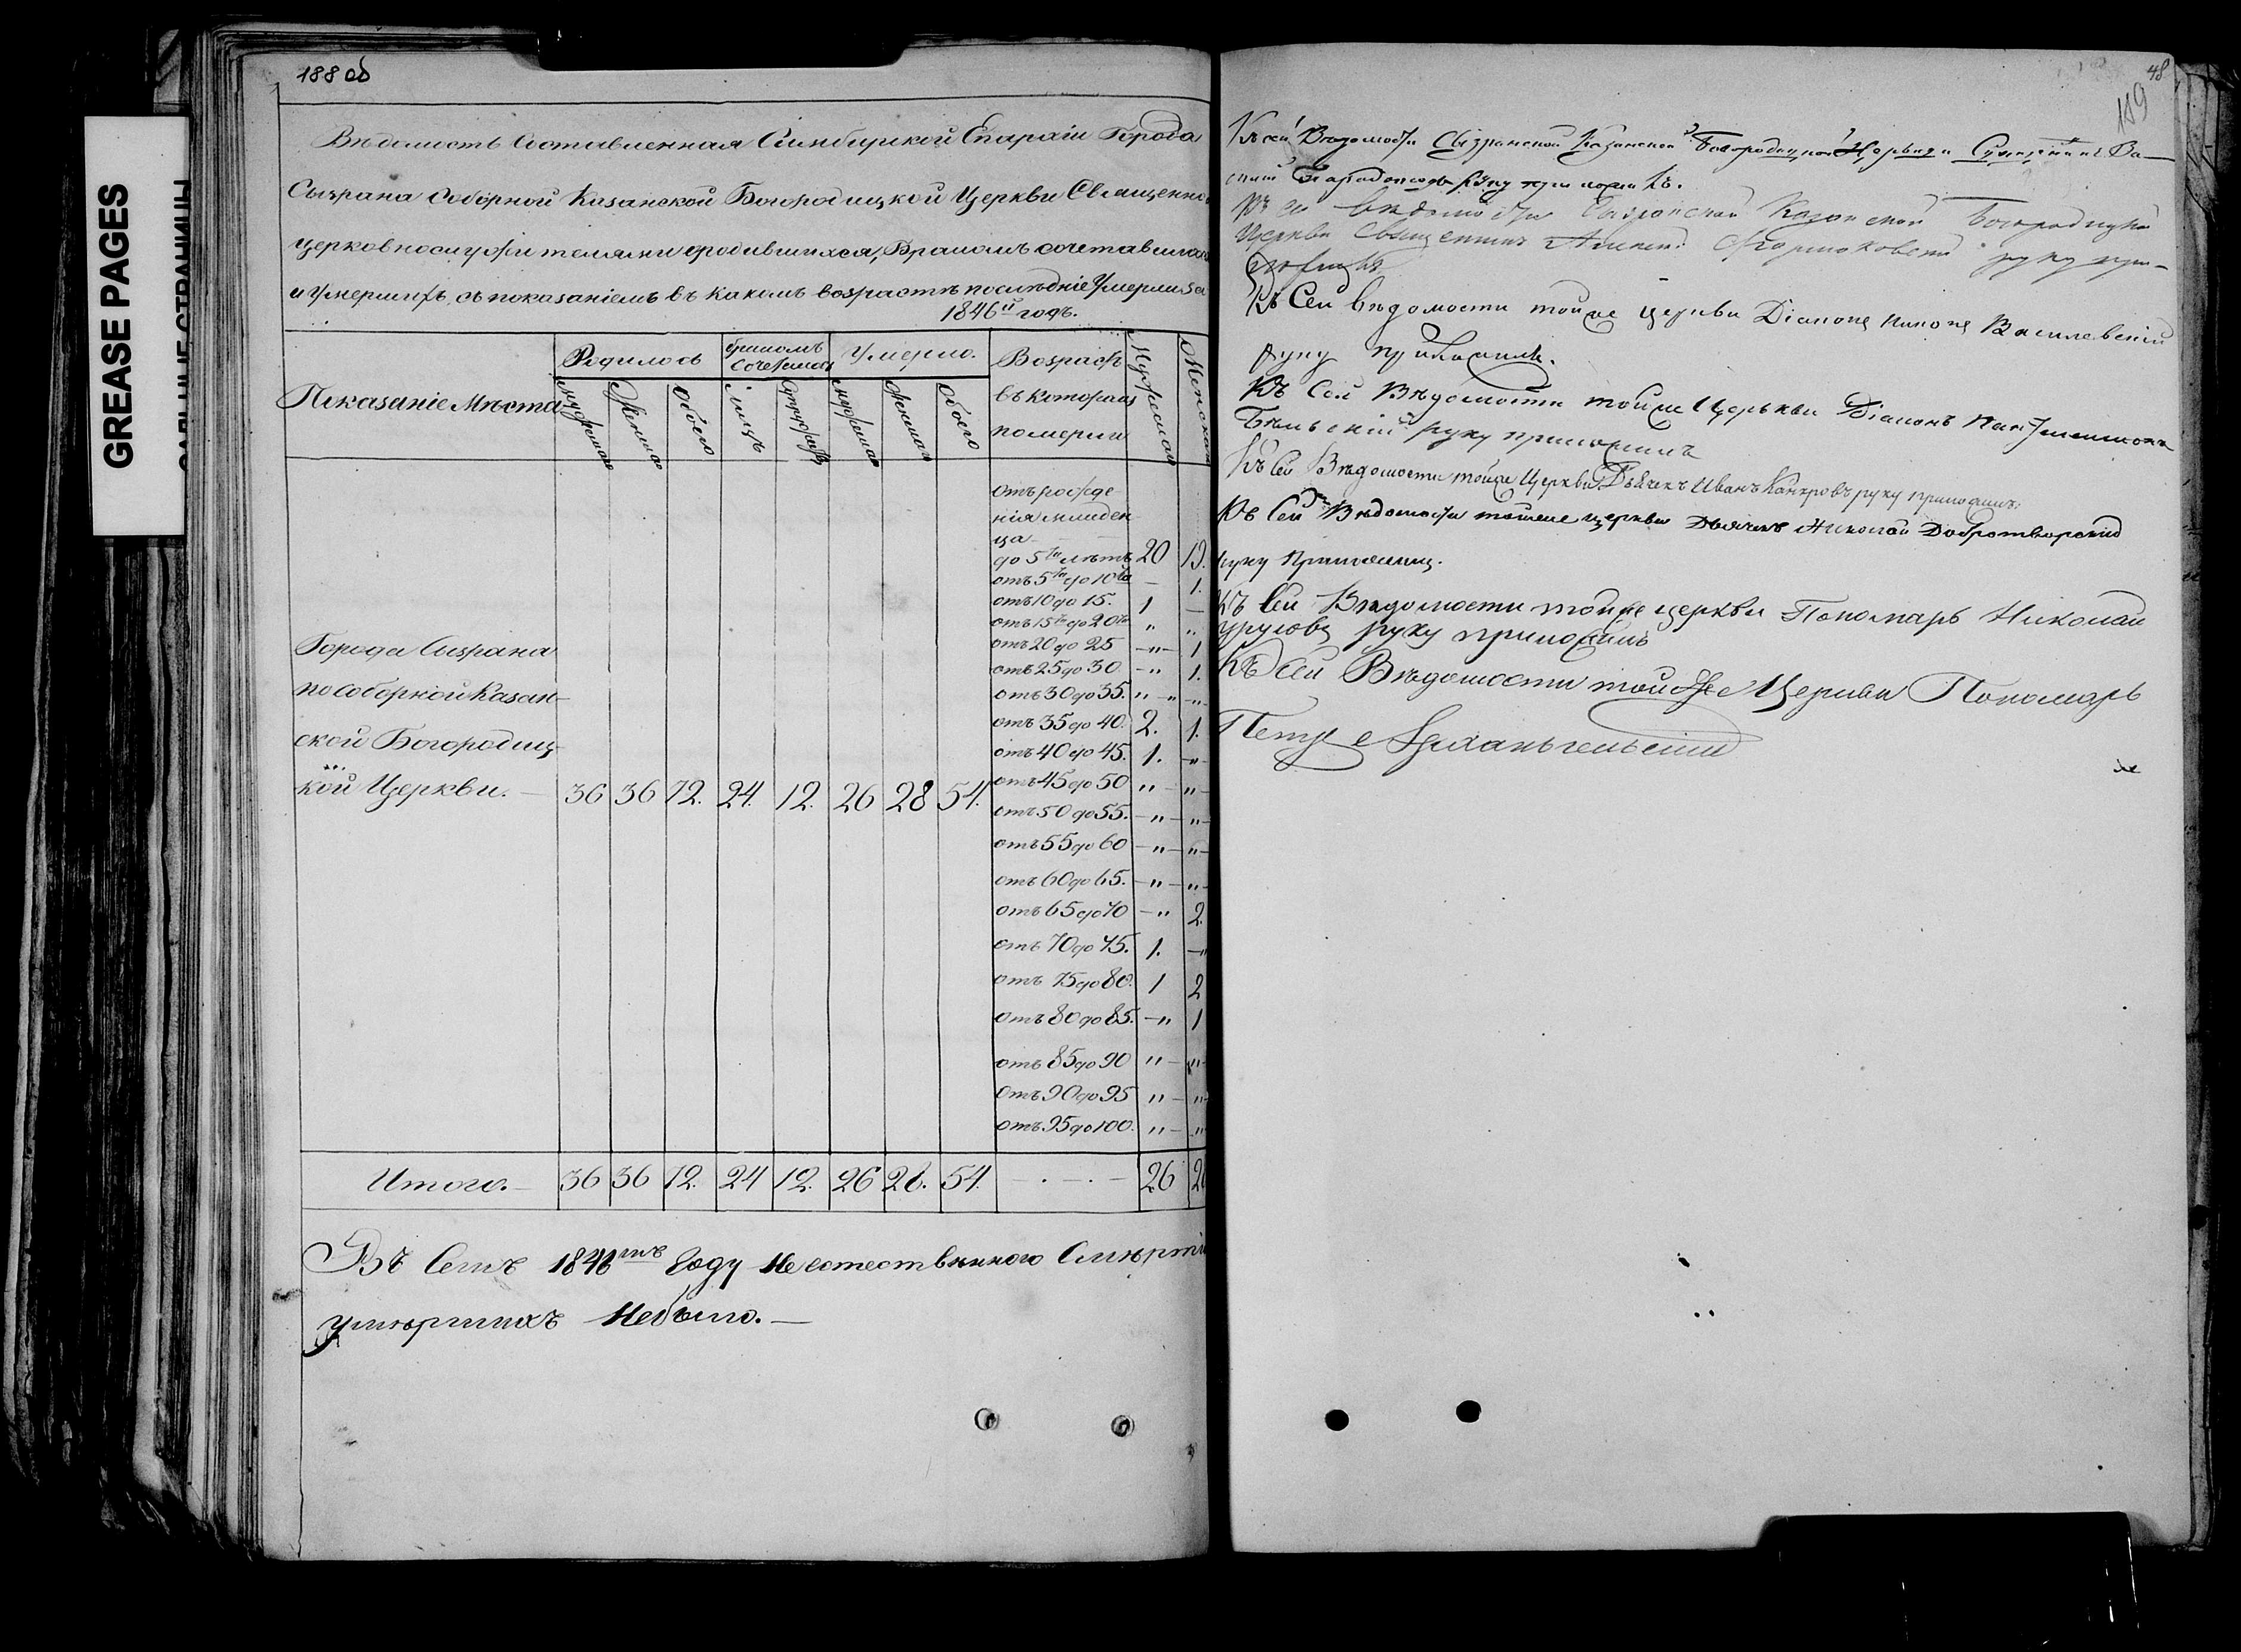 GREASE PAGES
188 об
Вѣдомость Составленная Симбирской Епархіи Города
Сызрана Соборной Казанской Богородицкой Церкви Священно
церковнослужителями о родившихся, Бракомъ сочетавшихся
и Умершихъ, съ показаніемъ въ какомъ возрастѣ послѣдніе Умерли за
1846й годъ.
Показаніе Мѣста
Родилось
бракомъ сочеталось
Умерло.
Возрастъ въ которомъ померли
Мужеска
Женска
Обоего
отъ рожде
нія младен
ца
до 5ти лѣтъ 20 13.
отъ 5ти до 10ти — 1.
отъ 10 до 15. 1 —
отъ 15ти до 20ти " "
отъ 20 до 25 — " — 1
отъ 25 до 30 — " 1.
отъ 30 до 35. " — " — " —
отъ 35 до 40. 2. 1.
отъ 40 до 45. 1. — " —
отъ 45 до 50 " — " —
отъ 50 до 55. — " — " —
отъ 55 до 60 — " — " —
отъ 60 до 65. — " — " —
отъ 65 до 70 — " 2
отъ 70 до 75. 1. — "
отъ 75 до 80. 1 2
отъ 80 до 85. — " 1
отъ 85 до 90 " — " —
отъ 90 до 95 " — " —
отъ 95 до 100. " — "
Города Сызрана
по Соборной Казан-
ской Богородиц-
кой Церкви. — 36 36 72. 24. 12. 26 28 54.
Итого. — 36 36 72. 24 12. 26 28. 54. — · — · — 26
Въ Семъ 1846мъ Году Неестественного Смѣртію
умѣршихъ Небыло. —
48
189
Къ сей Вѣдомости Сызранской Казанской Богородицкой Церкви Священникъ Ва—
руку приложилъ.
Къ сей вѣдомости Сызранской Казанской Богородицкой
Церкви Священникъ Алексей руку при-
ложилъ
Къ Сей вѣдомости тойже церкви Діаконъ Никоне Василевскій
руку приложилъ.
Къ Сей Вѣдомости тойже Церькви Діаконъ Пантелеимонъ
Бѣльскій руку приложилъ
Къ Сей Вѣдомости тойже Церкви Дьячекъ Иванъ руку приложилъ.
Къ Сей Вѣдомости тойже церкви Дьячекъ Николай Добротворскій
руку Приложилъ.
Къ Сей Вѣдомости тойже церкви Пономарь Николай
руку приложилъ
Къ Сей Вѣдомости тойже Церкви Пономарь
Петръ Архангельскій